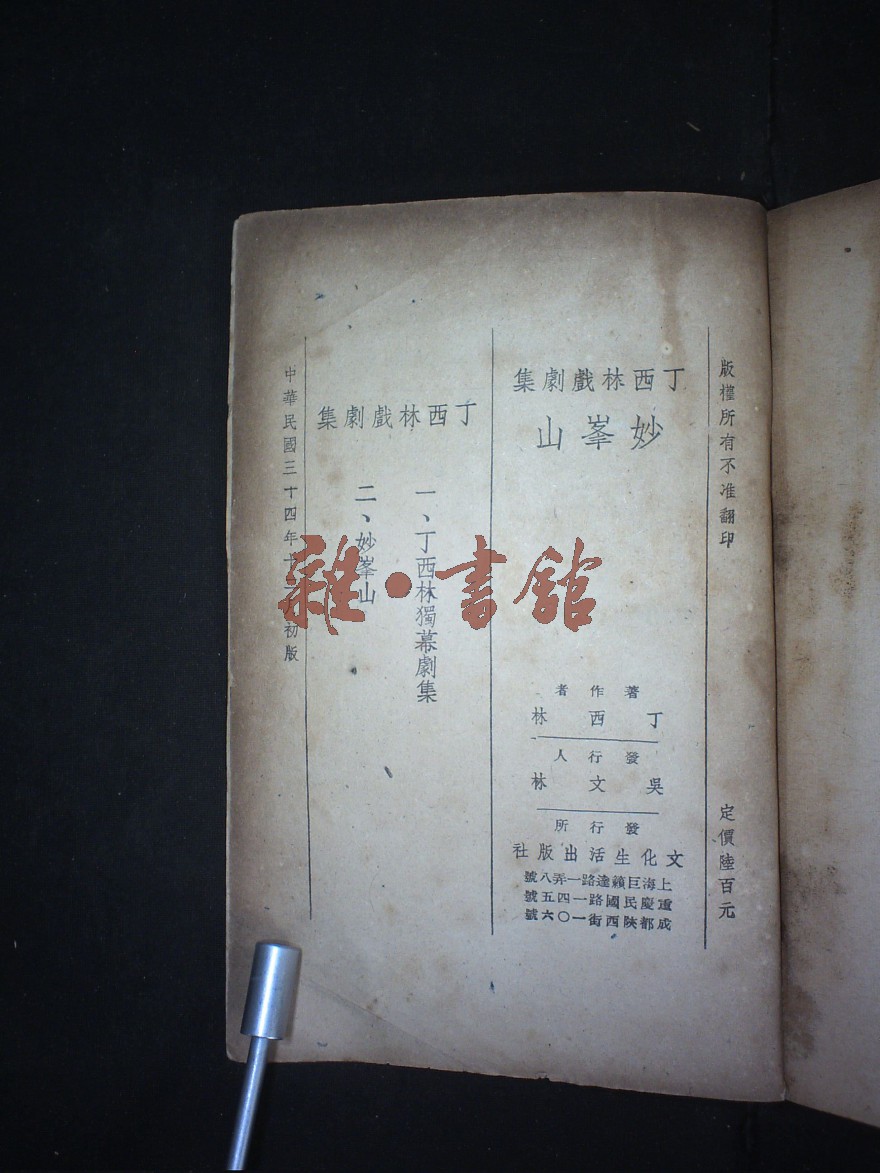 版權所有不准翻印
定價陸百元
丁西林戲劇集
妙峯山
著作者
丁西林
發行人
吳文林
發行所
文化生活出版社
上海巨籟達路一弄八號
重慶民國路一四五號
成都陝西街一〇六號
丁西林戲劇集
一、丁西林獨幕劇集
二、妙峯山
中華民國三十四年十初版
雜·書館